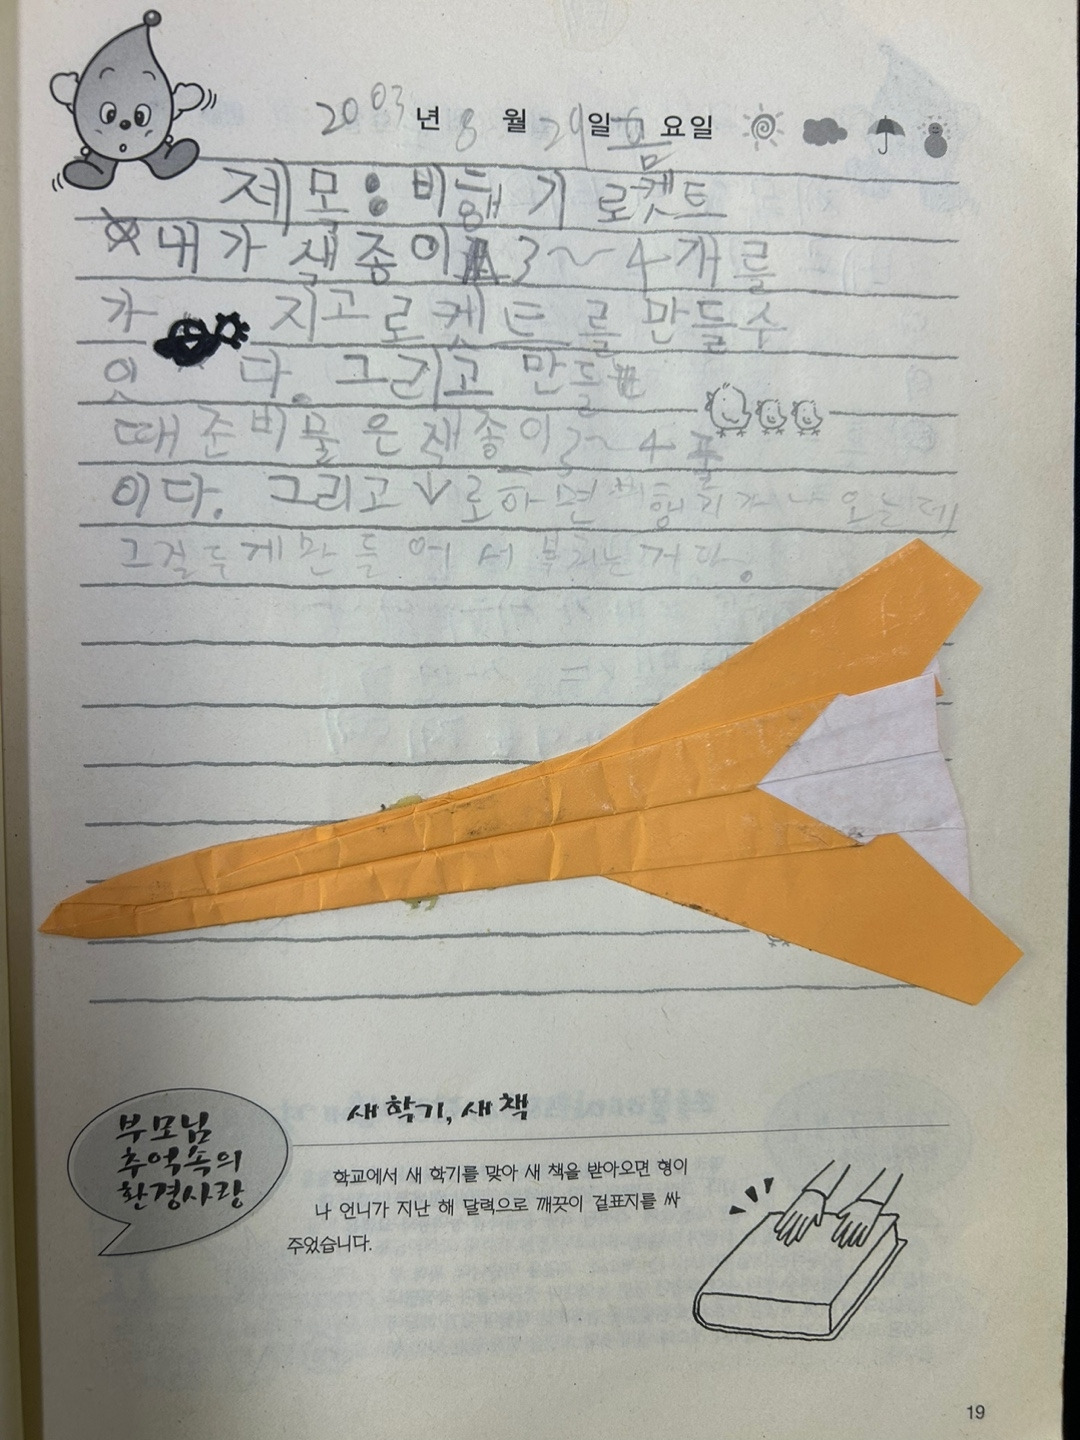 2003년 8월 29일 금요일
제목: 비행기 로켓트
내가 색종이 3~4개를
가지고 로켓트를 만들수
잇다. 그리고 만들
때 준비물은 색종이 3~4
이다. 그리고 ↓로하면 비행기가 나오는데
그걸 두게 만들어서 붙치는거다.
부모님
추억속의
환경사랑
새 학기, 새 책
학교에서 새 학기를 맞아 새 책을 받아오면 형이
나 언니가 지난 해 달력으로 깨끗이 겉표지를 싸
주었습니다.
19